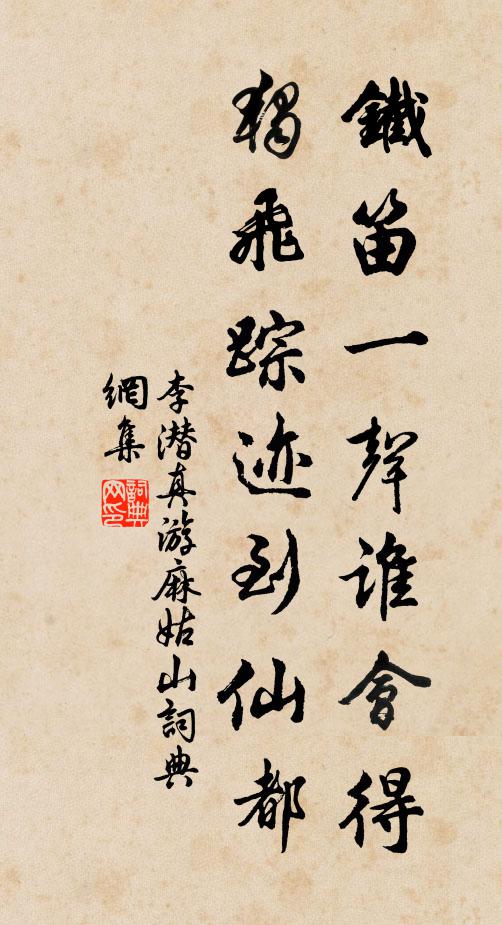 鐵笛一聲誰會得
獨飛踪迹到仙都
李潜真游麻姑山詞典
網集
詞典
网印